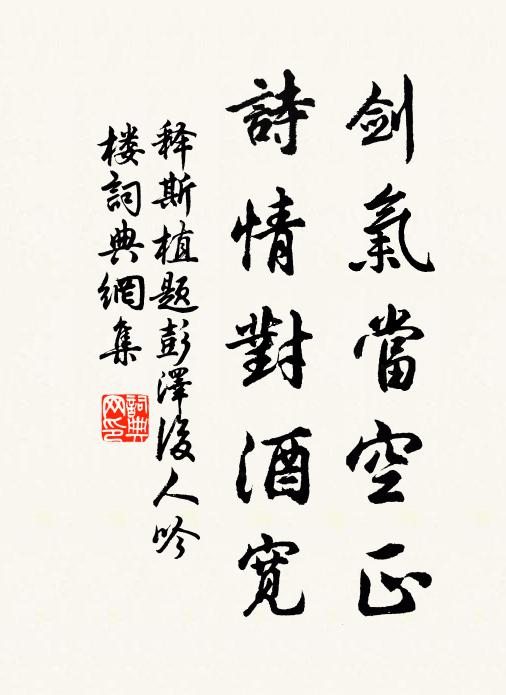 劍氣當空正
詩情對酒寬
释斯植题彭澤後人吟
楼詞典網集
詞典网印